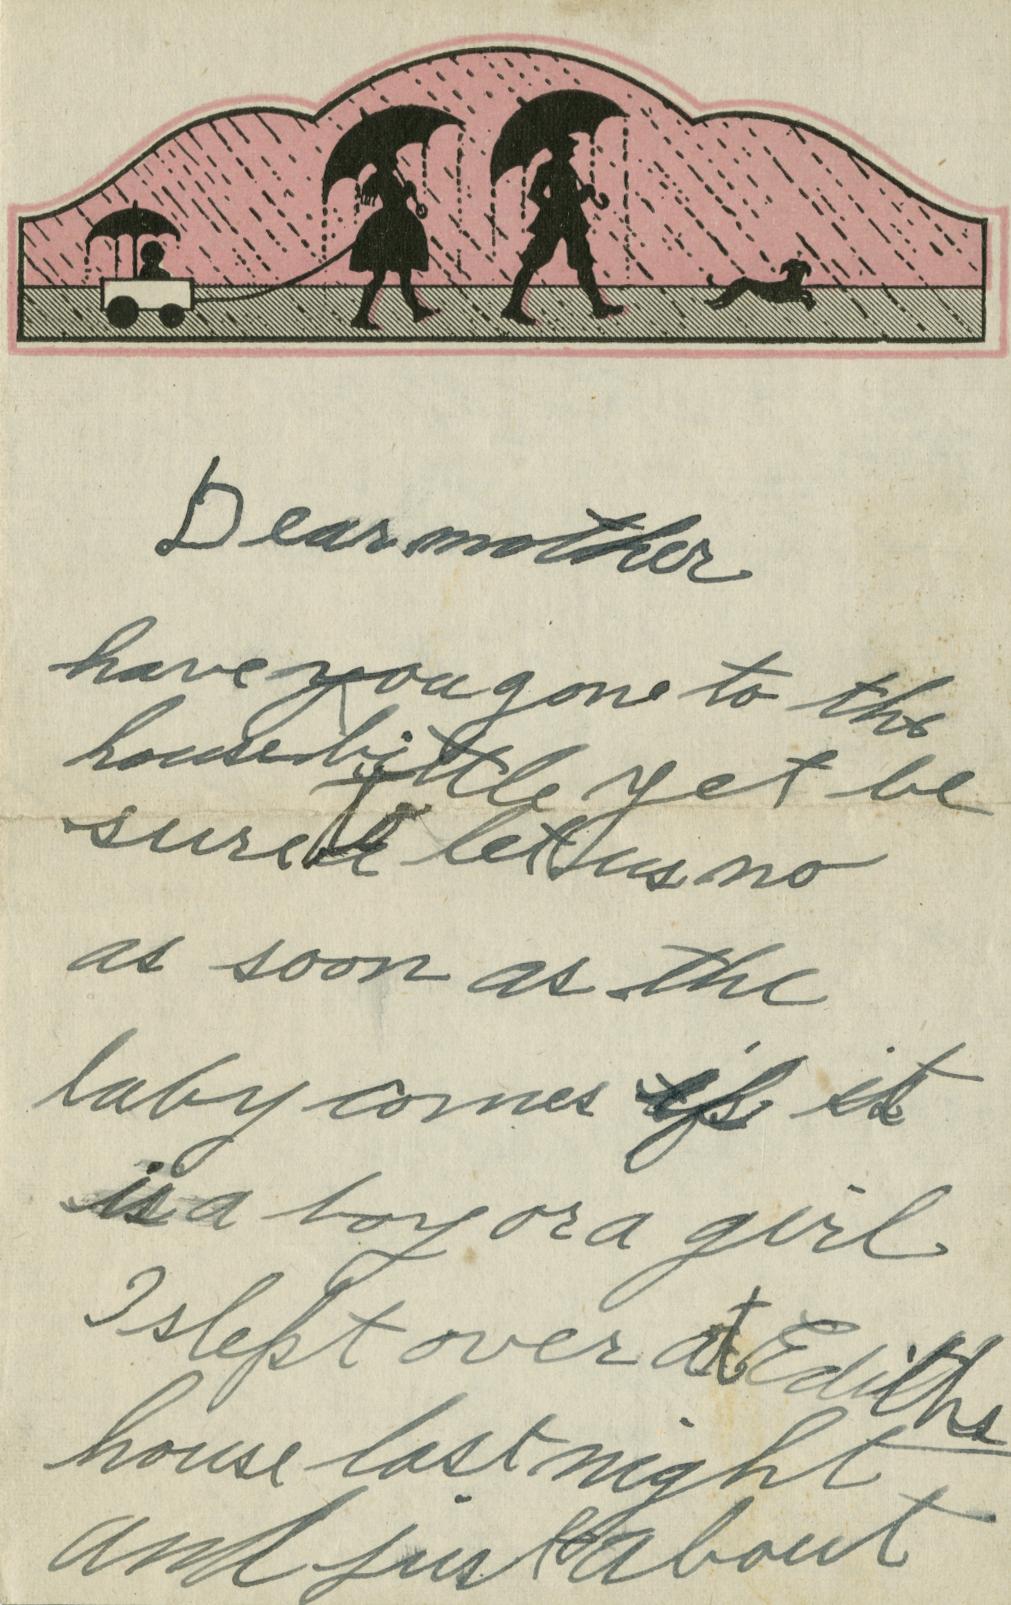 Dear mother
have you gone to the
house bittle yet be
sure let us no
as soon as the
baby comes if it
is a boy or a girl
I slept over at Ediths
house last night
and just about